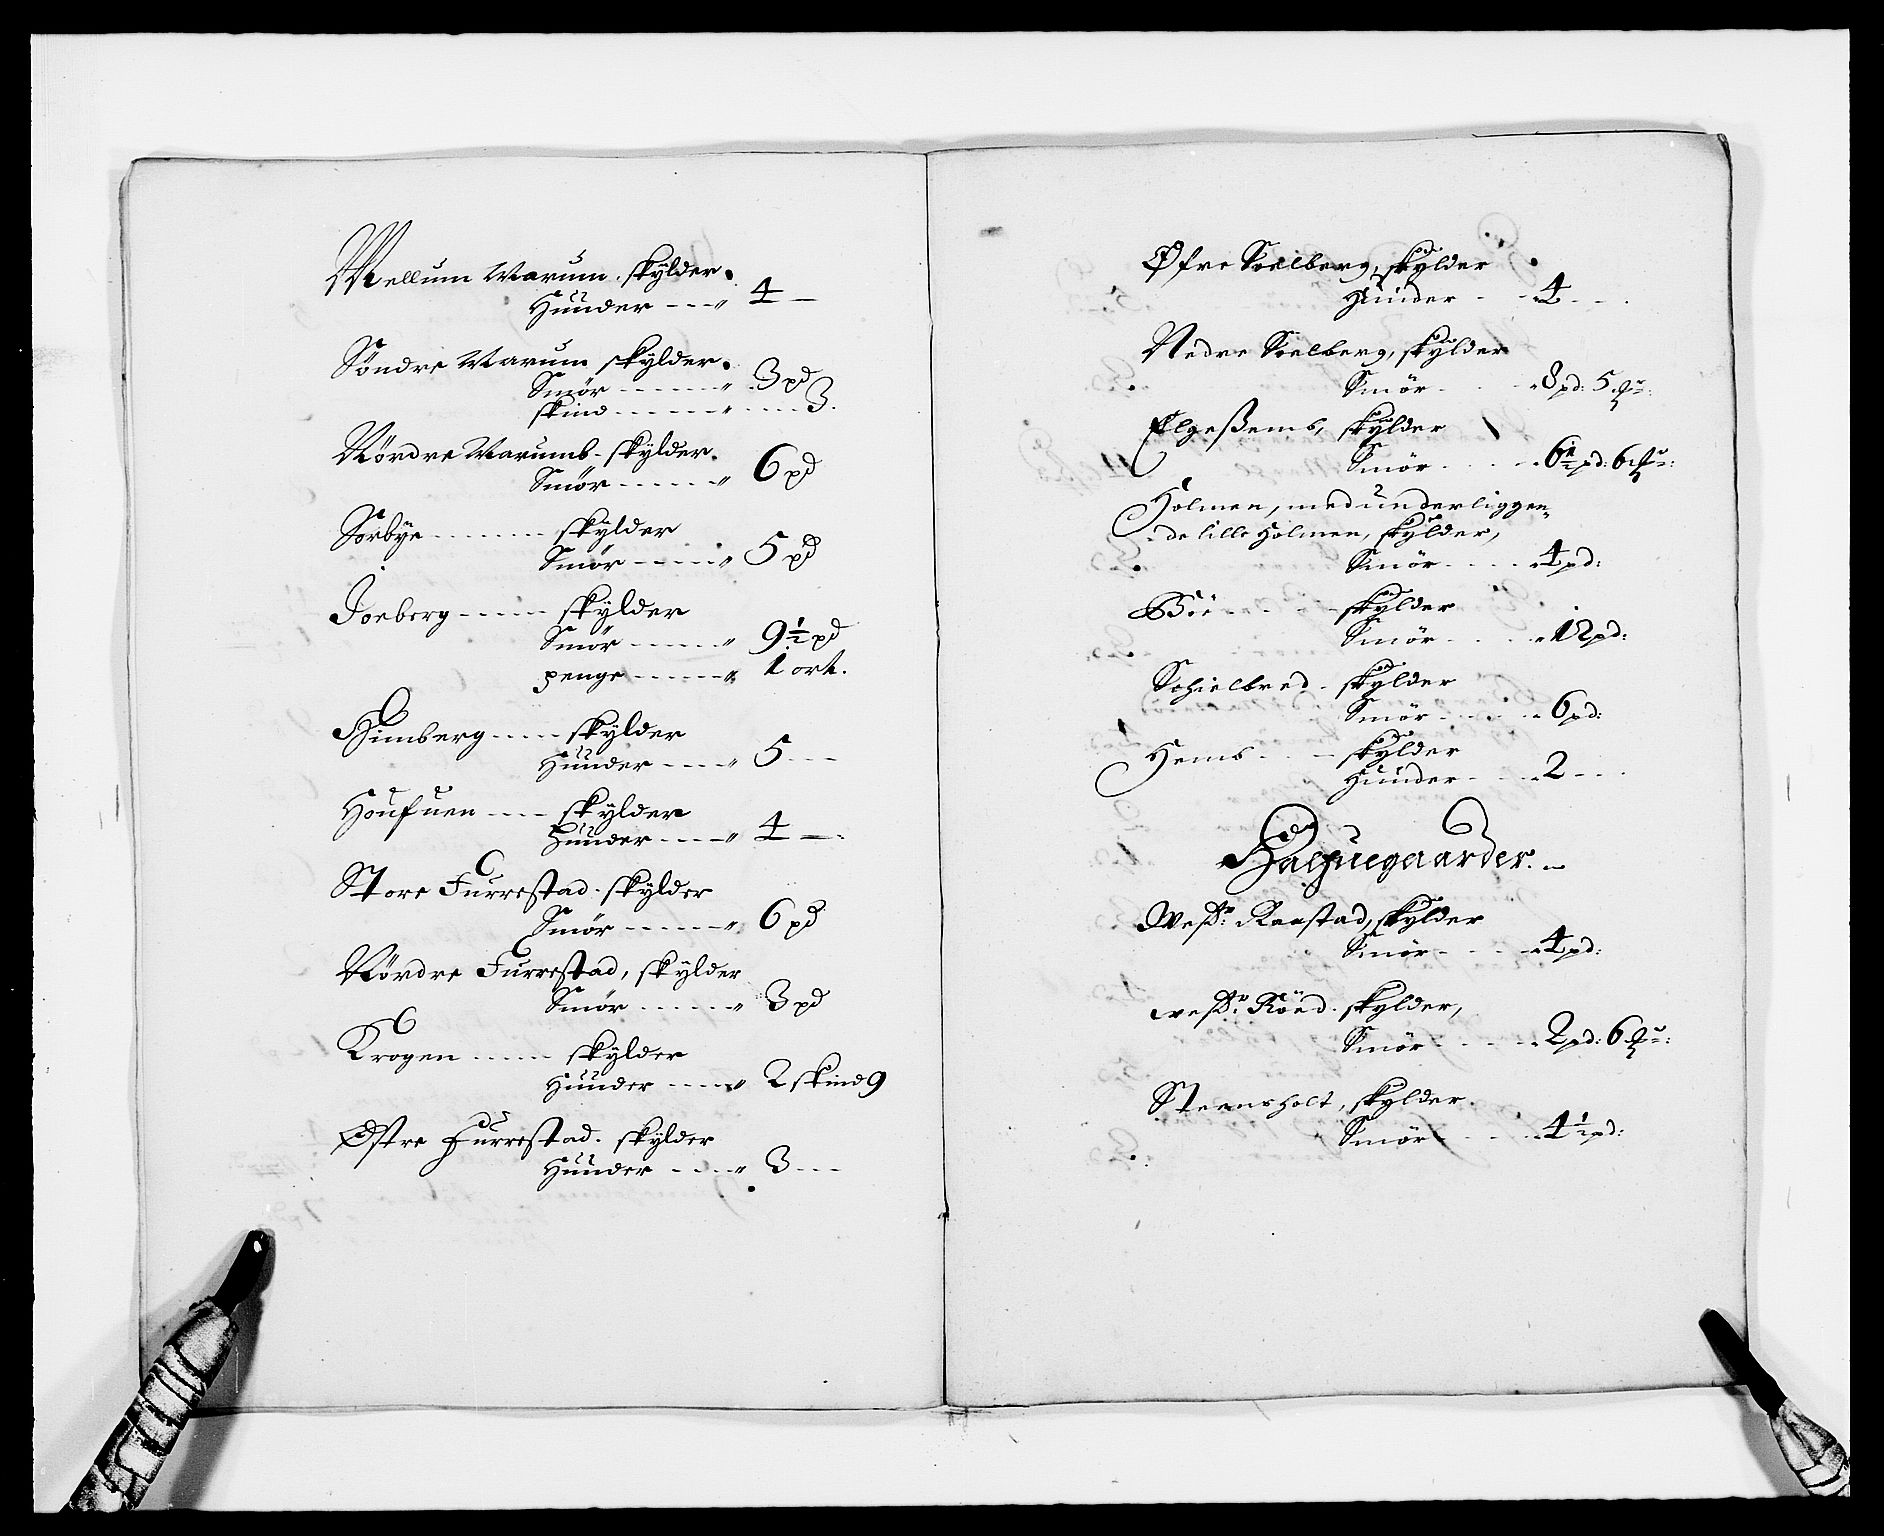 Mellum Warum skylder.
Huuder --- " 4 -
Söndre Warum skylder.
Smör ------ " 3 pd
skind ------ " ---- 3.
Nördre Warumb - skylder.
Smör ------ " 6 pd
Sörbye -------- skylder
Smör ----- " 5 pd
Joeberg ------ skylder
Smör ------ " 9 1/2 pd
penge ------ " 1 ort.
Himberg ----- skylder
Huuder ---- " 5 ---
Houfuen ---- skylder
Huuder ---- " 4 -
Store Furrestad - skylder
Smör ------ " 6 pd
Nördre Furrestad, skylder
Smör ------ " 3 pd
Krogen ------ skylder
Huuder ---- " 2 skind 9
Østre Furrestad - skylder
Huuder ---- " 3 ---
Øfre Soelberg, skylder
Huuder - - " 4 - - .
Nedre Soelberg, skylder
Smör - - - " 8 pd: 5
Elgeßems, skylder
Smör - - - " 6 1/2 pd: 6
Holmen, med underliggen„
de lille Holmen, skylder,
Smör - - - " 4 pd:
Böe - - - skylder
Smör - - - " 12 pd:
Schielbred - skylder
Smör - - - " 6 pd:
Hems - - - skylder
Huuder - - - " 2 - -
Halfuegaarder. -
Westr: Raastad, skylder
Smör - - - " 4 pd:
westr: Röed - skylder,
Smör - - - " 2 pd: 6
Steensholt, skylder.
Smör - - - " 4 1/2 pd: